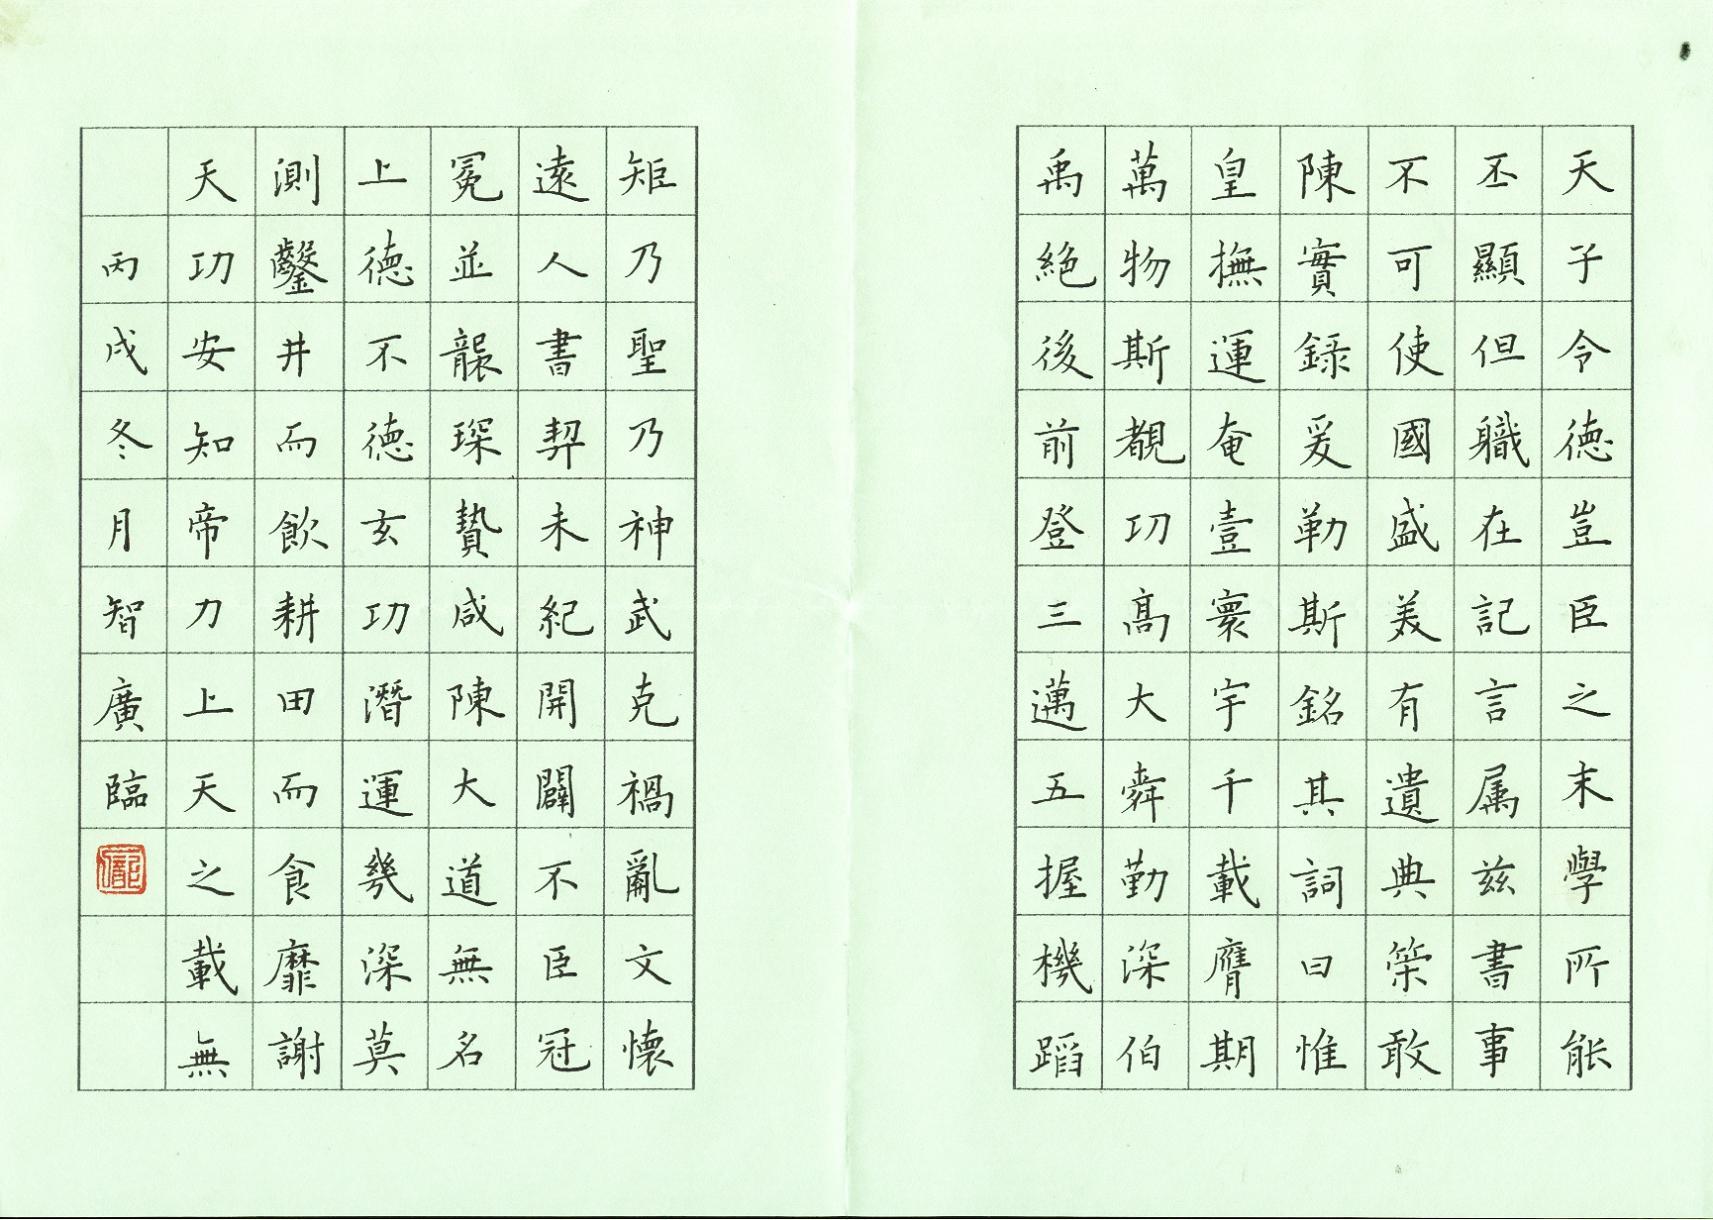 天子令德豈臣之末學所能
丕顯但職在記言属茲書事
不可使國盛美有遺典策敢
陳實録爰勒斯銘其詞曰惟
皇撫運奄壹寰宇千載膺期
萬物斯覩功髙大舜勤深伯
禹絶後前登三邁五握機蹈
矩乃聖乃神武克禍亂文懷
遠人書契未紀開闢不臣冠
冕並襲琛贄咸陳大道無名
上德不德玄功潛運幾深莫
測鑿井而飲耕田而食靡謝
天功安知帝力上天之載無
丙戌冬月智廣臨